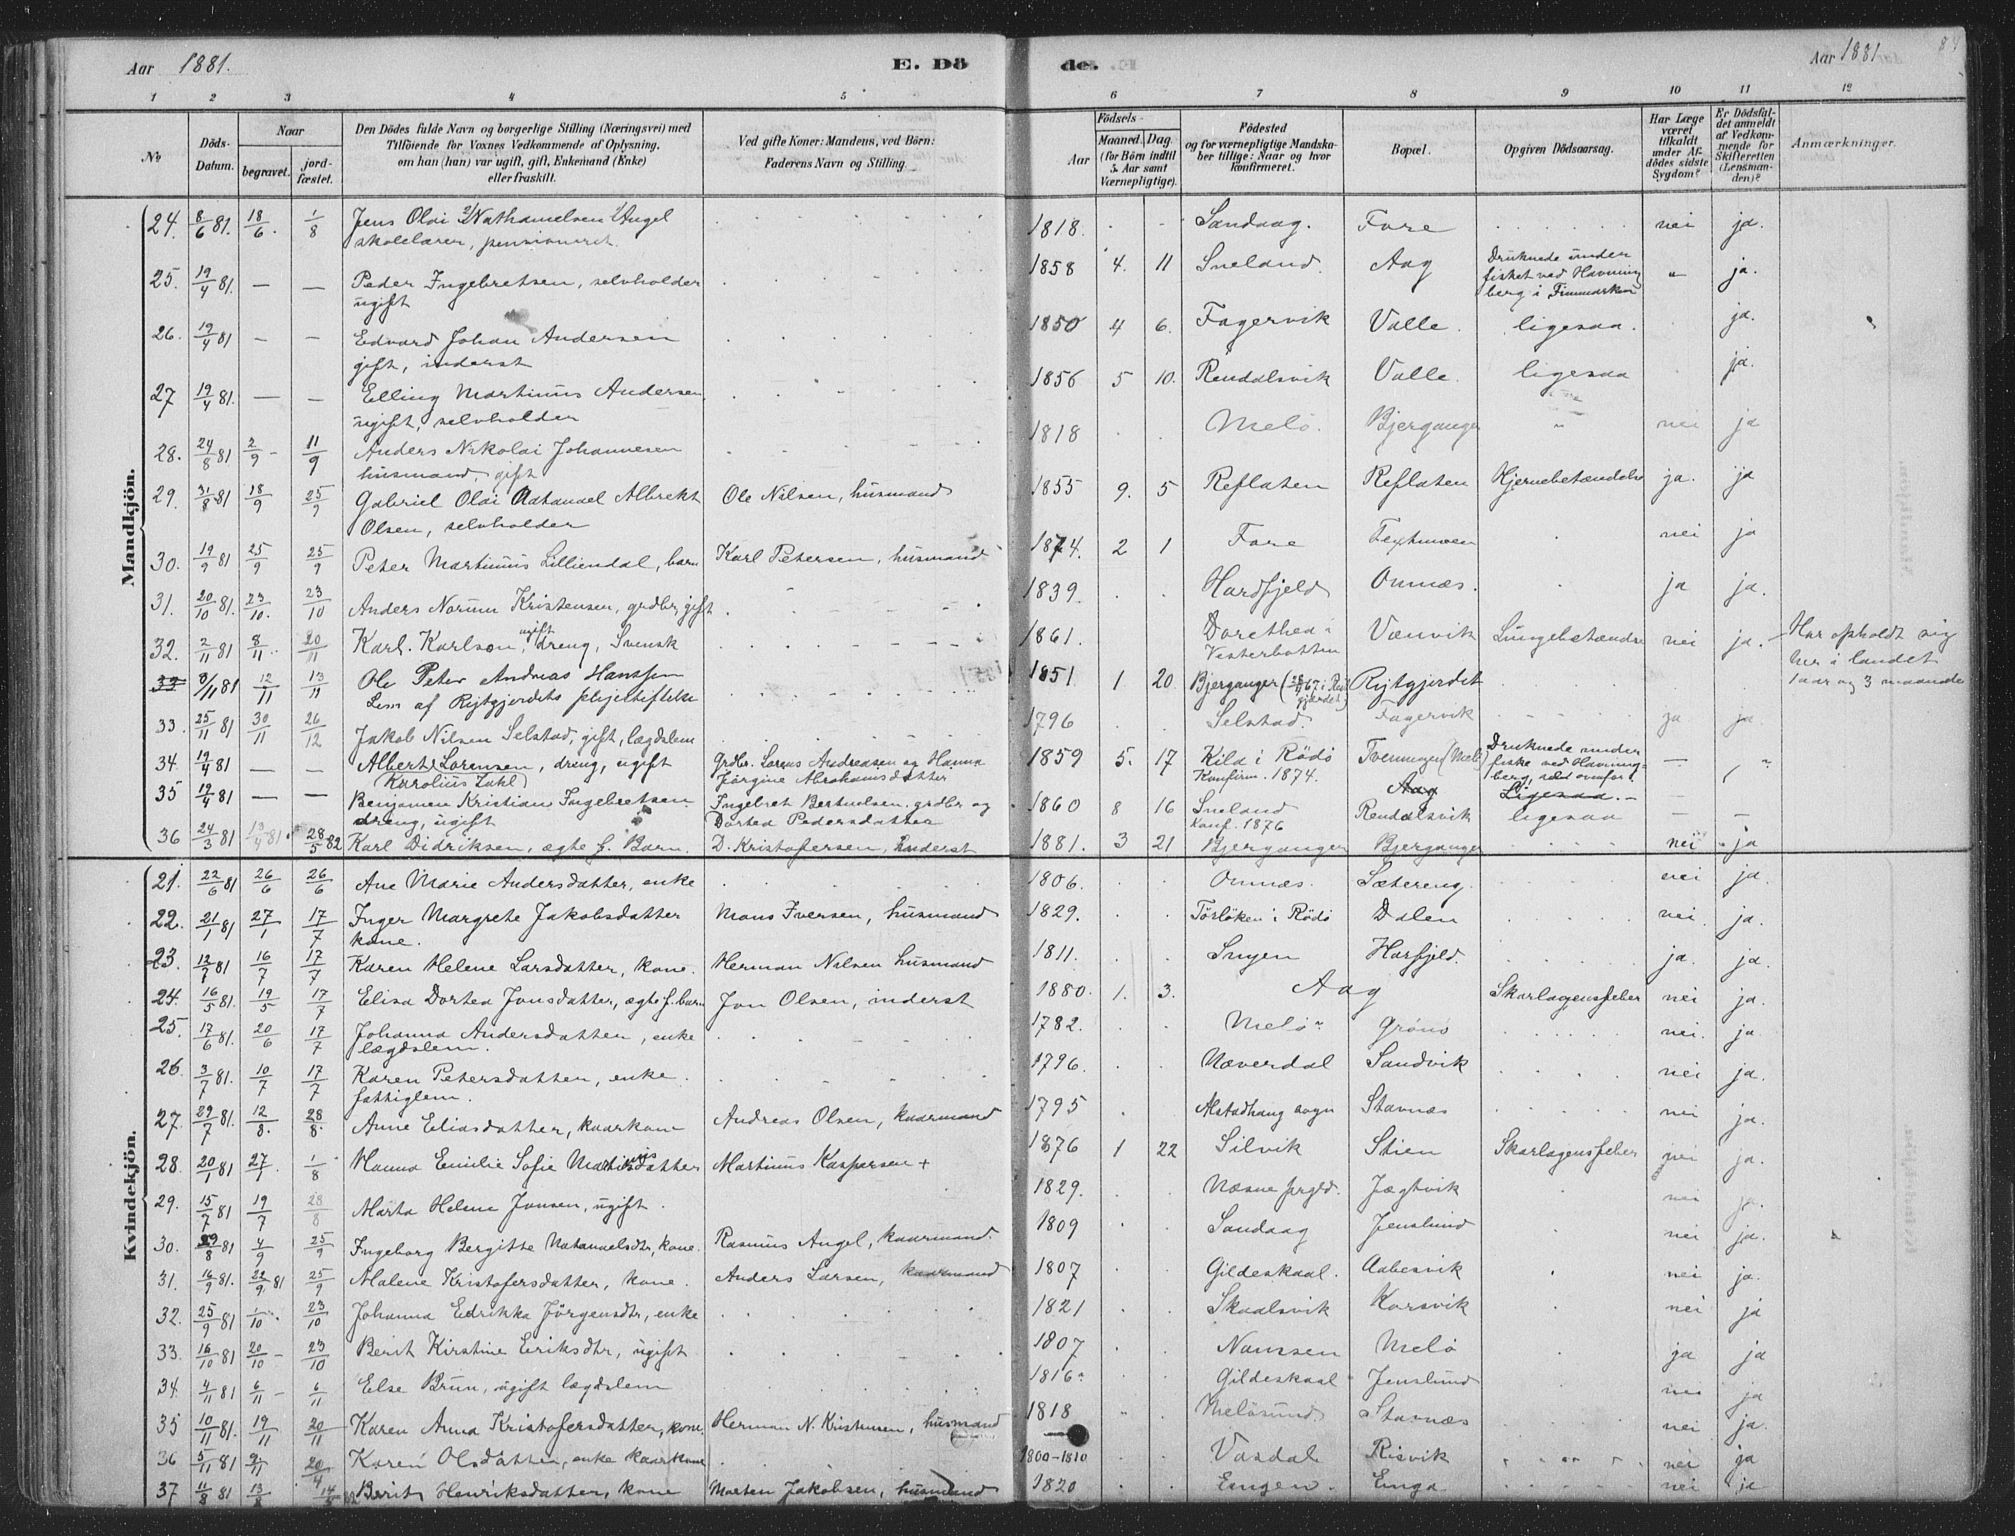 Aar 1881. E. Dö de. Aar 1881
1 2 3 4 5 6 7 8 9 10 11 12
No
Döds-Datum.
Naar
begravet.
jord-fæstet.
Den Dödes fulde Navn og borgerlige Stilling (Næringsvei) med
Tilföiende for Voxnes Vedkommende af Oplysning,
om han (hun) var ugift, gift, Enkemand (Enke)
eller fraskilt.
Ved gifte Koner: Mandens, ved Börn:
Faderens Navn og Stilling.
Födsels-
Aar
Maaned. Dag.
(for Börn indtil
5. Aar samt
Værnepligtige).
Födested
og for værnepligtige Mandska-
ber tillige: Naar og hvor
konfirmeret.
Bopæl.
Opgiven Dödsaarsag.
Har Læge
været
tilkaldt
under Af-
dödes sidste
Sygdom?
Er Dödsfal-
det anmeldt
af Vedkom-
mende for
Skifteretten
(Lensman-
den)?
Anmærkninger.
Mandkjön.
24. 8/6 81. 18/6. 1/8 Jens Olai 2) Nathanielsen 1) Angel 1818. Sandaag. Fore nei ja.
skolelærer, pensioneret.
25. 19/4 81. — — Peder Ingebretsen, selvholder 1858 4. 11 Sneland. Aag Druknede under fisket ved Havning berg i Finmarken " ja.
ugift
26. 19/4 81 — — Edvard Johan Andersen 1850 4 6. Fagervik Valle. ligesaa. ja.
gift, inderst
27 19/4 81. — — Elling Martinus Andersen 1856 5 10. Rendalsvik Valle. ligesaa ja.
ugift, selvholder
28. 24/8 81 2/9 - 11/9 Anders Nikolai Johannesen 1818 Melö. Bjerganger " nei ja
husmand, gift
29. 31/8 81 18/9 25/9 Gabriel Olai Natanael Albrekt Ole Nilsen, husmand 1855 9. 5 Reflaten Reflaten Hjernebetændelse ja. ja
Olsen, selvholder
30. 19/9 81 25/9 25/9 Peter Martinus Lilliendal, barn Karl Petersen, husmand 1874. 2 1 Fore nei ja
31. 20/10 81. 23/10. 23/10 Anders Norum Kristensen, grdbr, gift 1839. Hardfjeld Ornnæs. ja ja.
32. 2/11 81 8/11. 20/11 Karl. Karlson, ugift dreng, Svensk 1861. Dorethea i Vesterbotten Vænvik Lungebetændse nei ja. Har opholdt sig her i landet 1 aar og 3 maaneder
33 3/11 81 12/11 13/11 Ole Peter Andreas Hanssen 1851. 1 20. Bjerganger Rejtgjerdet
Lem af Rejtgjerdets plejestiftelse
33. 25/11 81 30/11 26/12 Jakob Nilsen Selstad, gift, lægdslem 1796 Selstad Fagervik ja ja.
34. 19/4 81 — — Albert Lorensen, dreng, ugift Grdbr. Lorens Andreasen og Hanna 1859 5. 17 Kila i Rödö Tvenningen (Melö) Druknede under fiske ved Havning-berg, — "
(Karolius Zakl) Jörgine Abrahamsdatter Konfirm. 1874.
35 19/4 81 — — Benjamen Kristian Ingebretsen Ingebret Bertholsen. grdbr og 1860 8 16 Sneland Aag Rendalsvik Ligesaa.- ligesaa — —
dreng, ugift Dortea Pedersdatter Konf. 1876
36 24/3 81 13/4 81. 28/5 82 Karl Didriksen, ægte f. Barn. D. Kristofersen, Inderst 1881. 3 21 Bjerganger Bjerganger nei ja
Kvindekjön.
21. 22/6 81 26/6 26/6 Ane Marie Andersdatter, enke 1806. Ornnæs. Sætereng. nei ja.
22. 21/1 81 27/1 17/7 Inger Margrete Jakobsdatter Mons Iversen, husmand 1829. Törlöken i Rödö Dalen nei. ja.
kone.
23. 12/7 81 16/7 17/7 Karen Helene Larsdatter, kone. Herman Nilsen husmand 1811. Sngen Harfjeld. ja. ja.
24. 16/5 81. 19/5 17/7 Elisa Dortea Jonsdatter, ægte f. barn Jon Olsen, inderst 1880. 1. 3. Aag Skarlagensfeber nei ja.
25. 17/6 81. 20/6 17/7 Johanna Andersdatter, enke 1782. Melö Grönö nei. ja.
lægdslem.
26. 3/7 81. 10/7 17/7 Karen Petersdatter, enke. 1796. Næverdal Sandvik nei ja.
fattiglem.
27. 29/7 81. 12/8. 28/8. Anne Eliasdatter, kaarkone Andreas Olsen, kaarmand 1795 Alstadhaug sogn Stavnæs nei ja.
28. 20/1 81 27/1. 1/8 Hanna Emilie Sofie Martinusdatter Martinus Kaspersen + 1876 1 22 Silvik Stien Skarlagensfeber nei ja.
29. 15/7 81 19/7 28/8 Marta Helene Jonsen, ugift. 1829. Næsne prgld. Jægtvik nei ja.
30. 29/8 81 4/9 25/9 Ingeborg Bergitte Natanaelsdtr, kone. Rasmus Angel, kaarmand. 1809 Sandaag Jenslund nei ja.
31. 16/9 81. 22/9 81 25/9 Malene Kristofersdatter, kone. Anders Larsen, kaarmand 1807 Gildeskaal. Aabesvik nei ja.
32. 25/9 81 1/10. 23/10 Johanna Edrikka Jörgensdtr, enke 1821 Skaalsvik Korsvik nei ja
33. 16/10 81 20/10 - 23/10 Berit Kirstine Eriksdtr, ugift 1807 Namsen Melö ja ja
34. 4/11 81 6/11 - 6/11 Else Brun, ugift lægdslem 1816 Gildeskaal Jenslund nei ja
35 10/11 81. 19/11 20/11 Karen Anna Kristofersdatter, kone. Herman N. Kristensen, husmand 1818 Melösund Stavnæs nei ja.
36 5/11 81 9/11 20/4 Karen Olsdatter, enke kaarkone 1800-1810 Vasdal Risvik nei ja
37 11/8 81 13/8 14/8 82 Berit Henriksdatter, kone Morten Jakobsen, husmand 1820 Engen. Enga nei ja